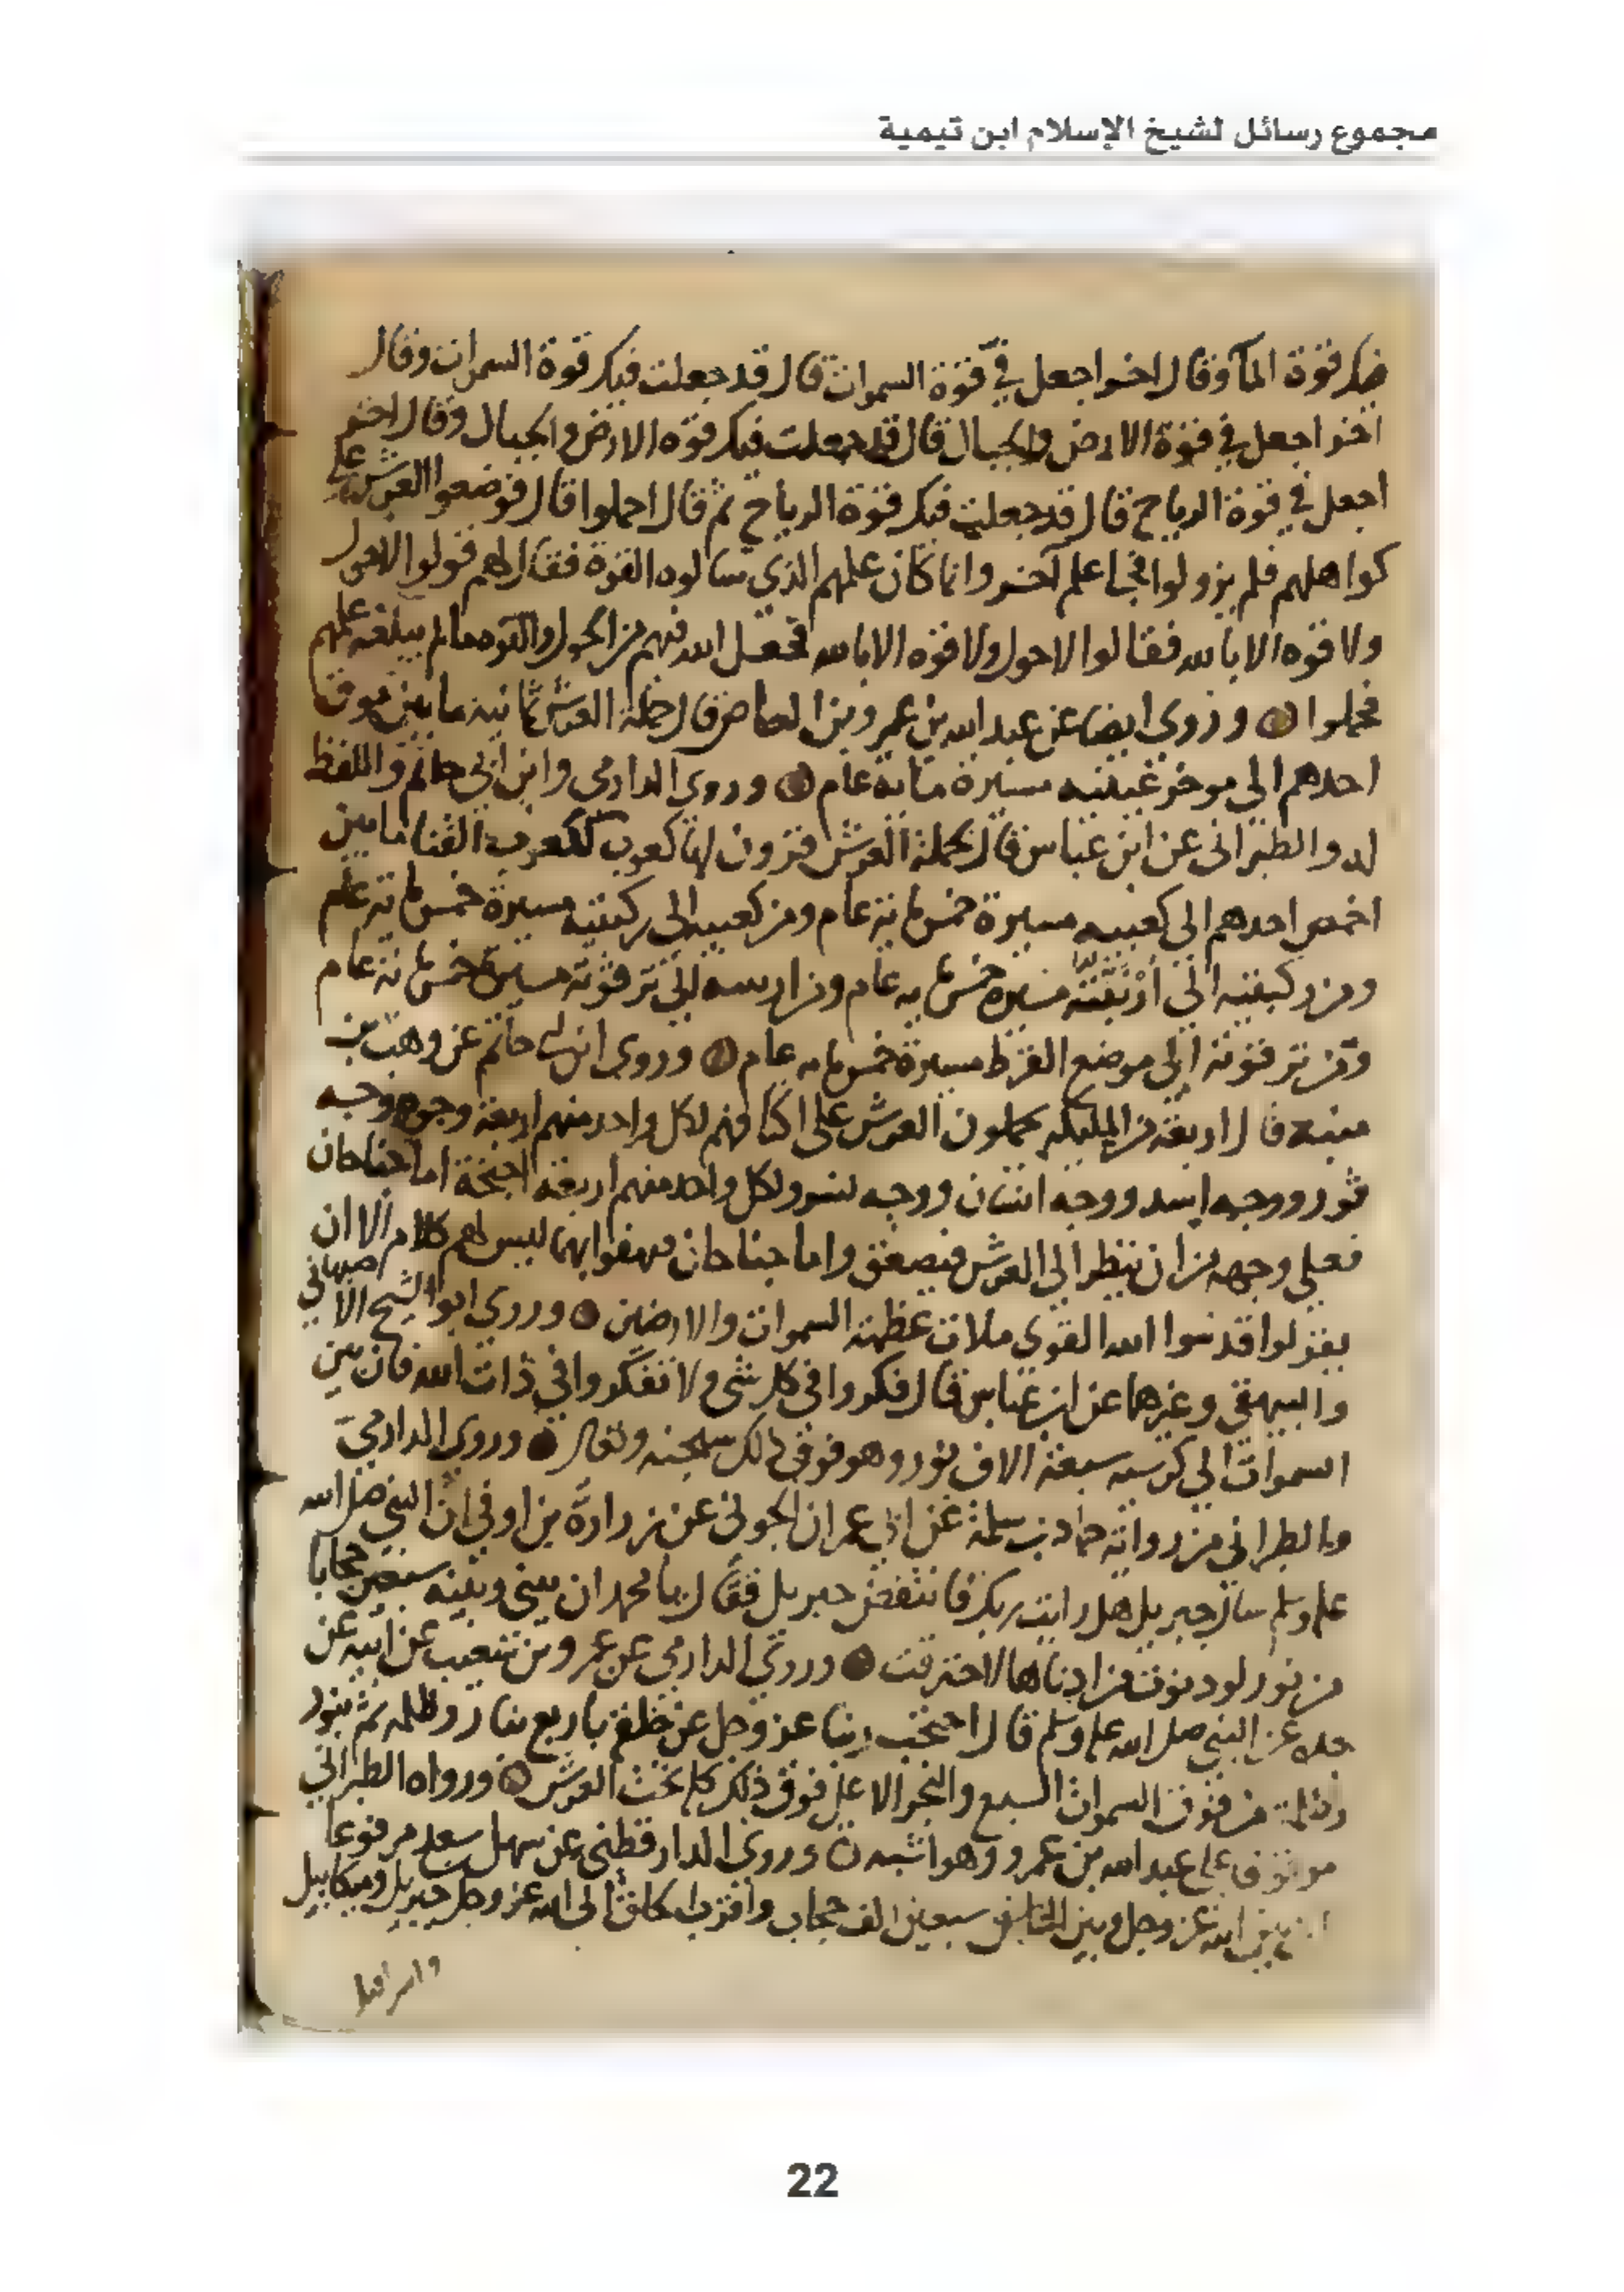 مجموع رسائل لشيخ الإسلام ابن تيمية
فيكر قوة المآ وقال اخر اجعل في قوة السموات قال قد جعلت فيك قوة السموات وقال
اخر اجعل في قوة الارض والجبال قال قد جعلت فيك قوه الارض والجبال وقال اخر
اجعل في قوة الرياح قال قد جعلت فيك قوة الرياح ثم قال احملوا قال فوضعوا العرش على
كواهلهم فلم يزولوا فجا علم آخر وانما كان علمهم الذي سالوه القوة فقال لهم قولوا لاحول
ولا قوه الا بالله فقالوا لاحول ولا قوه الا بالله فجعل الله فيهم من الحول والقوه مالم يبلغه علمهم
فحملوا وروي ايضا عن عبد الله بن عمرو بن العاص قال حملة العرش ثمانيه ما بين موق
احدهم الى موخر عينيه مسيرة مائة عام وروى الدارمي وابن ابي حاتم واللفظ
له والطبراني عن ابن عباس قال لحملة العرش قرون لها كعوب ككعوب القنا ما بين
اخمص احدهم الى كعبيه مسيرة خمس مائة عام ومن كعبيه الى ركبتيه مسيرة خمس مائة عام
ومن ركبتيه الى ارنبته مسيره خمس مايه عام ومن ارنبته الى ترقوته مسيرة خمس مائة عام
ومن ترقوته الى موضع القرط مسيرة خمس مايه عام وروى ابن ابي حاتم عن وهب بن
منبه قال اربعة من الملئكه يحملون العرش على اكتافهم لكل واحد منهم اربعة وجوه وجه
ثور ووجه اسد ووجه انسان ووجه نسر ولكل واحد منهم اربعة اجنحة اما جناحان
فعلى وجهه من ان ينظر الى العرش فيصعق واما جناحان فيهفوا بهما ليس لهم كلام الا ان
يقولوا قدسوا الله القوي ملات عظمته السموات والارضين وروى ابو الشيخ الاصبهاني
والبيهقي وغيرهما عن ابن عباس قال فكروا في كل شي ولا تفكروا في ذات الله فان بين
السموات الى كرسيه سبعة الاف نور وهو فوق ذلك سبحنه وتعالى وروى الدارمي
والطبراني من رواية حماد بن سلمة عن ابي عمران الجوني عن زرارة بن اوفى ان النبي صلى الله
عليه وسلم سال جبريل هل رايت ربك فانتفض جبريل فقال يا محمد ان بيني وبينه سبعين حجابا
من نور لو دنوت من ادناها لاحترقت وروى الدارمي عن عمرو بن شعيب عن ابيه عن
جده عن النبي صلى الله عليه وسلم قال احتجب ربنا عز وجل عن خلقه باربع بنار وظلمه ثم بنور
وظلمة من فوق السموات السبع والبحر الاعلى فوق ذلك كله تحت العرش ورواه الطبراني
موقوفا على عبد الله بن عمرو وهو اشبه وروى الدارقطني عن سهل بن سعد مرفوعا
ان بين الله عز وجل وبين الخلق سبعين الف حجاب واقرب الخلق الى الله عز وجل جبريل وميكاييل
واسرافيل
22